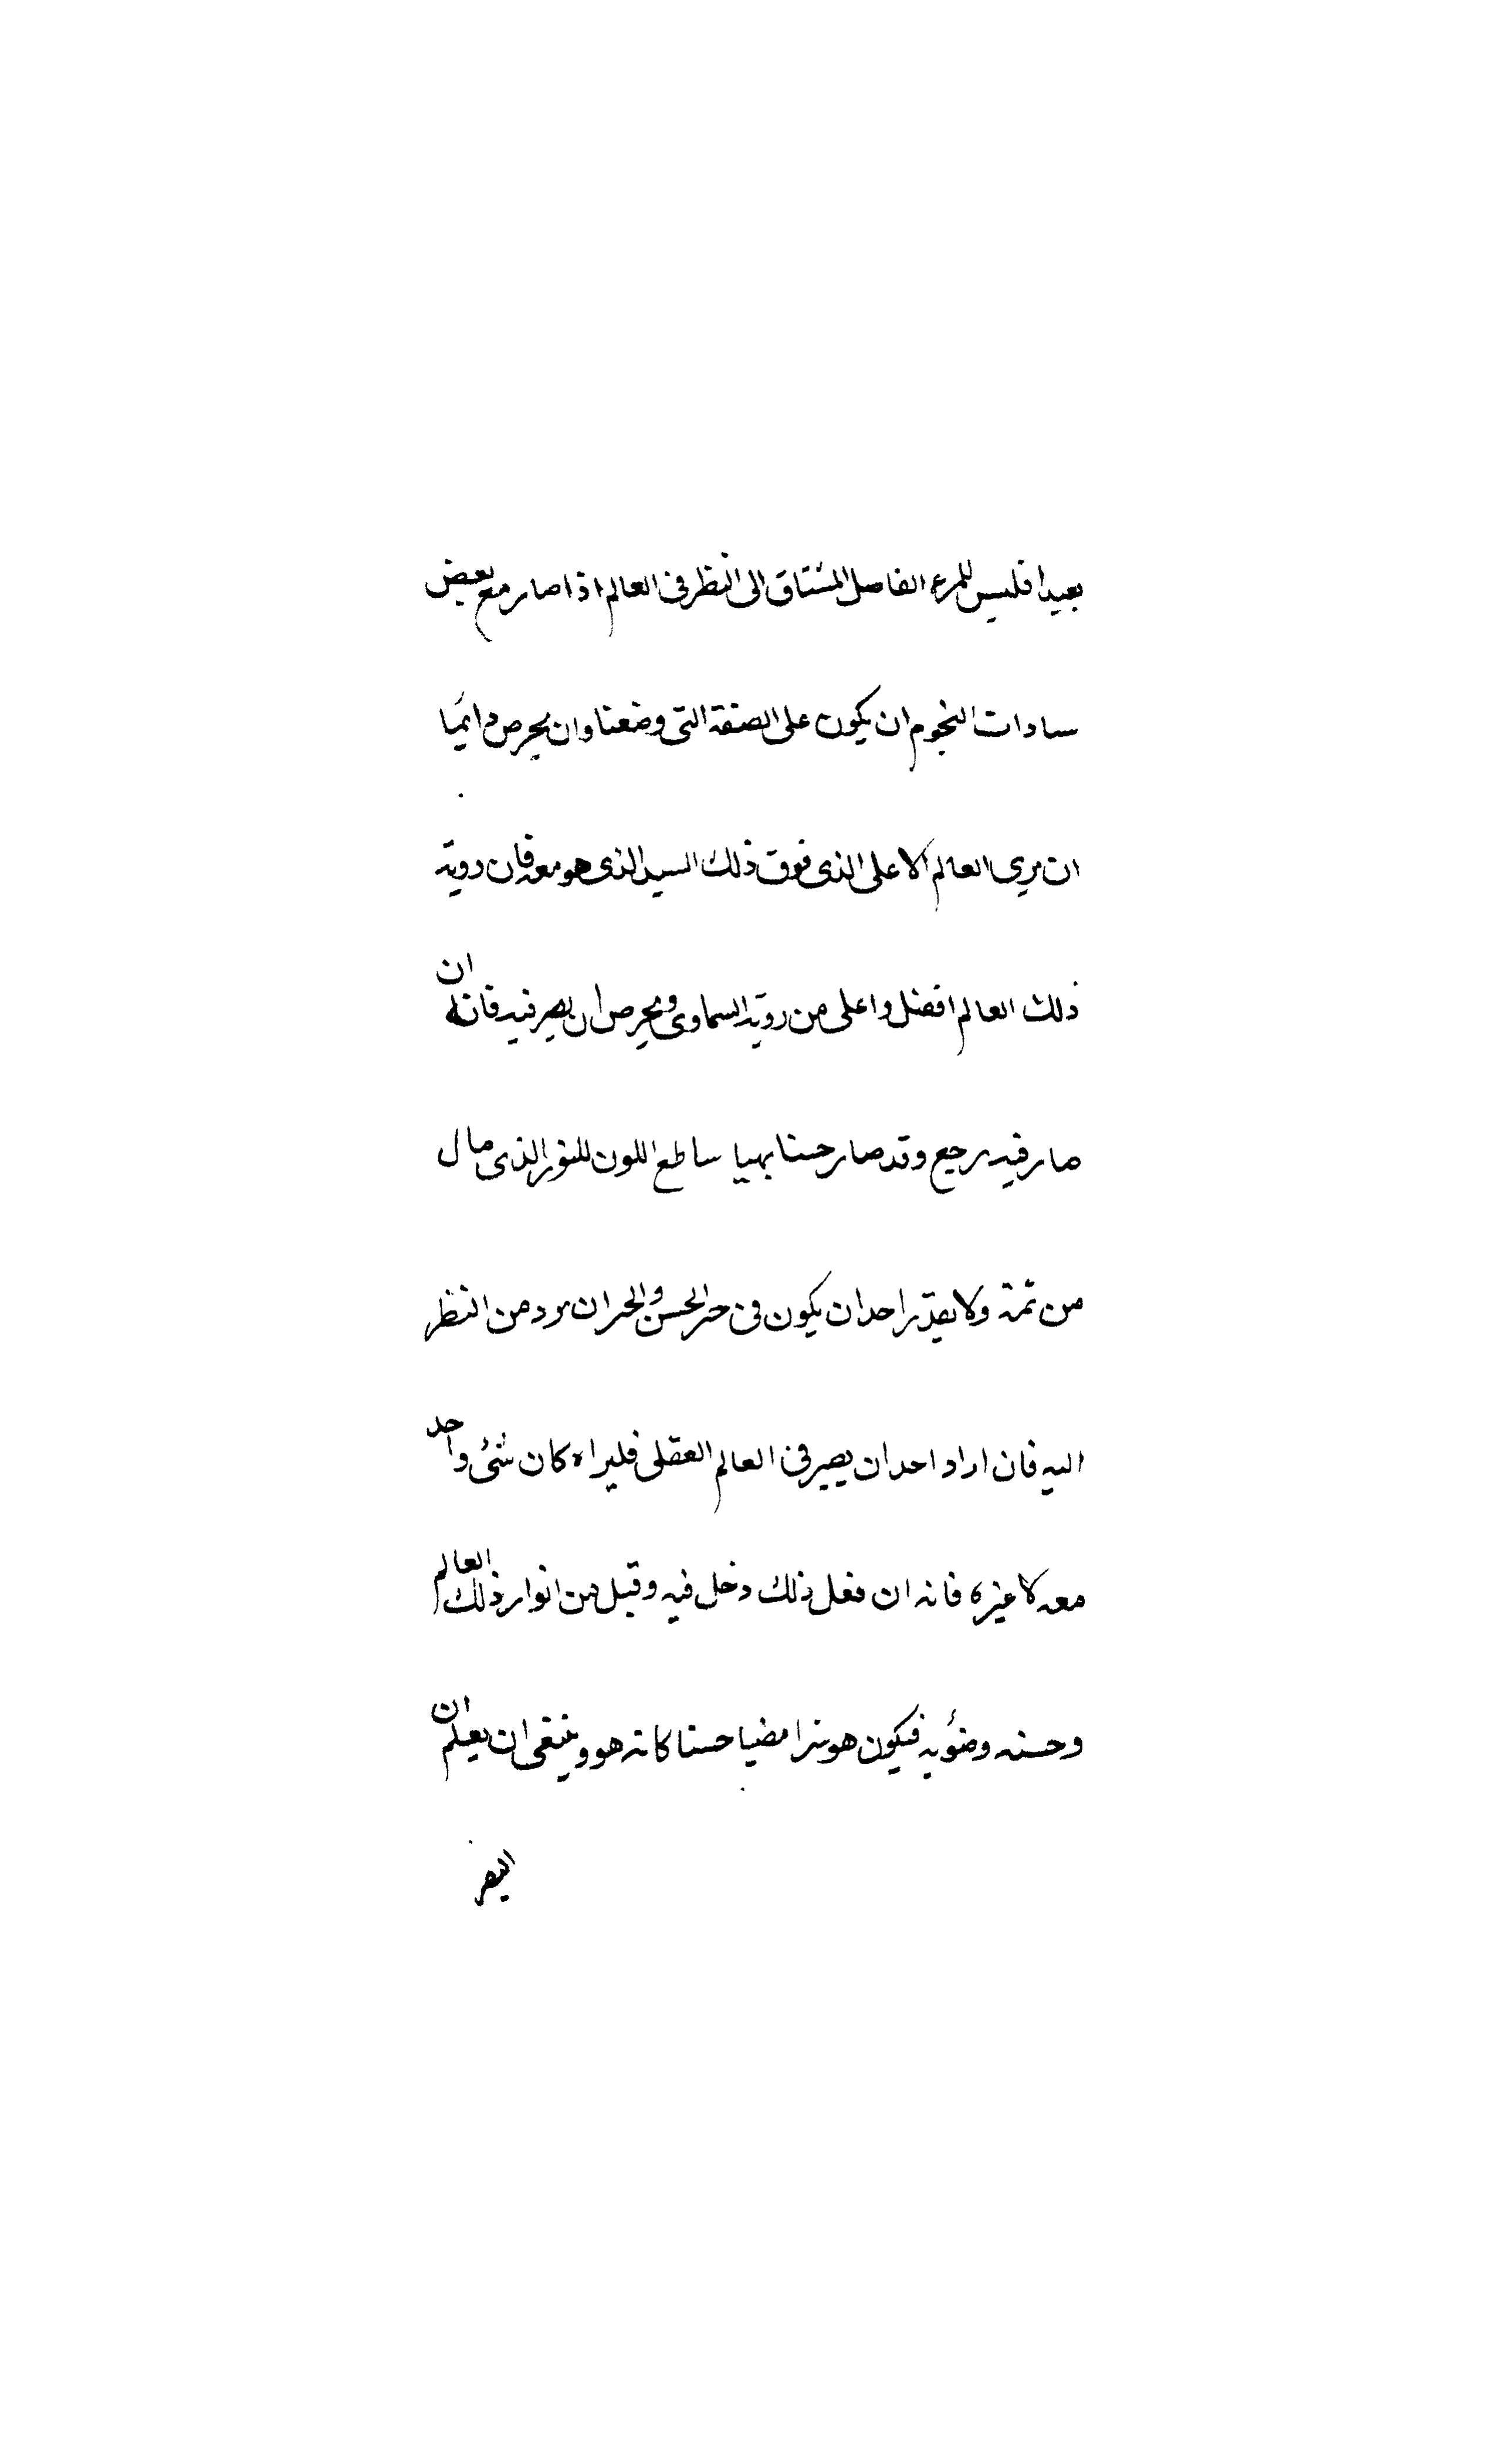 بعيدا فليس للمرء الفاضل المشتاق الى النظر فى العالم اذا صار مع بعض
سادات النجوم ان يكون على الصفة التى وضعنا وان يحرص دائما
ان يرى العالم الاعلى الذى فوق ذلك السيد الذى هو معه فان روية
ذلك العالم افضل واعلى من روية السماوى ويحرص ان يصير فيه فانه ان
صار فيه رجع وقد صار حسنا بهيا ساطع اللون للنور الذى مال
من ثمة ولا يقدر احد ان يكون فى حيز الحسن والخير ان يرد من النظر
اليه فان اراد احد ان يصير فى العالم العقلى فليراه كان شئ واحد
معه لا غيره فانه ان فعل ذلك دخل فيه وقبل من انوار ذلك العالم
وحسنه وضوئه فيكون هو نيرا مضيا حسنا كانه هو وينبغى ان يعلم ان
البصر